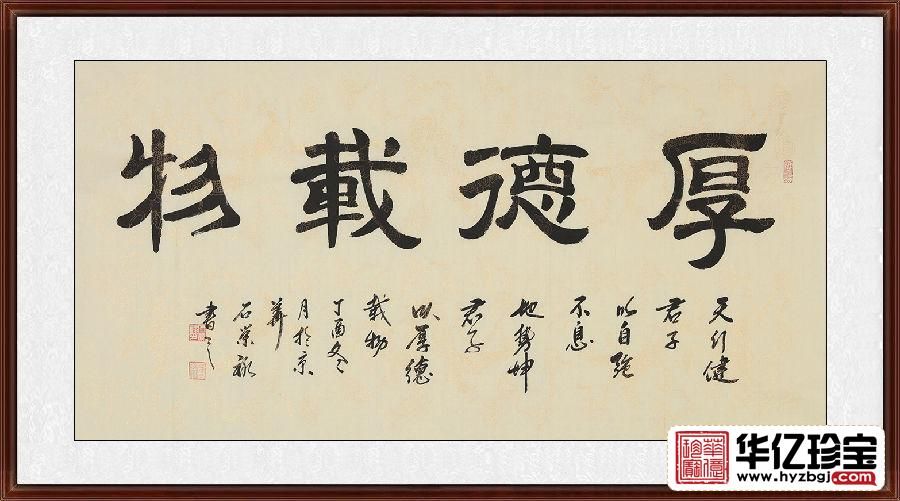 厚德載物
天行健
君子
以自強
不息
地勢坤
君子
以厚德
载物
丁酉冬
月於京
華
石荣禄
書之
华亿珍宝
www.hyzbgj.com